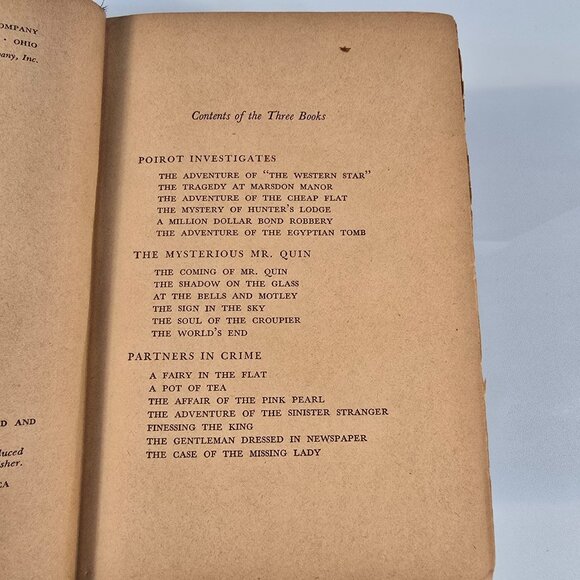 OMPANY
· OHIO
pany, Inc.
D AND
duced
isher.
CA
Contents of the Three Books
POIROT INVESTIGATES
THE ADVENTURE OF "THE WESTERN STAR"
THE TRAGEDY AT MARSDON MANOR
THE ADVENTURE OF THE CHEAP FLAT
THE MYSTERY OF HUNTER'S LODGE
A MILLION DOLLAR BOND ROBBERY
THE ADVENTURE OF THE EGYPTIAN TOMB
THE MYSTERIOUS MR. QUIN
THE COMING OF MR. QUIN
THE SHADOW ON THE GLASS
AT THE BELLS AND MOTLEY
THE SIGN IN THE SKY
THE SOUL OF THE CROUPIER
THE WORLD'S END
PARTNERS IN CRIME
A FAIRY IN THE FLAT
A POT OF TEA
THE AFFAIR OF THE PINK PEARL
THE ADVENTURE OF THE SINISTER STRANGER
FINESSING THE KING
THE GENTLEMAN DRESSED IN NEWSPAPER
THE CASE OF THE MISSING LADY